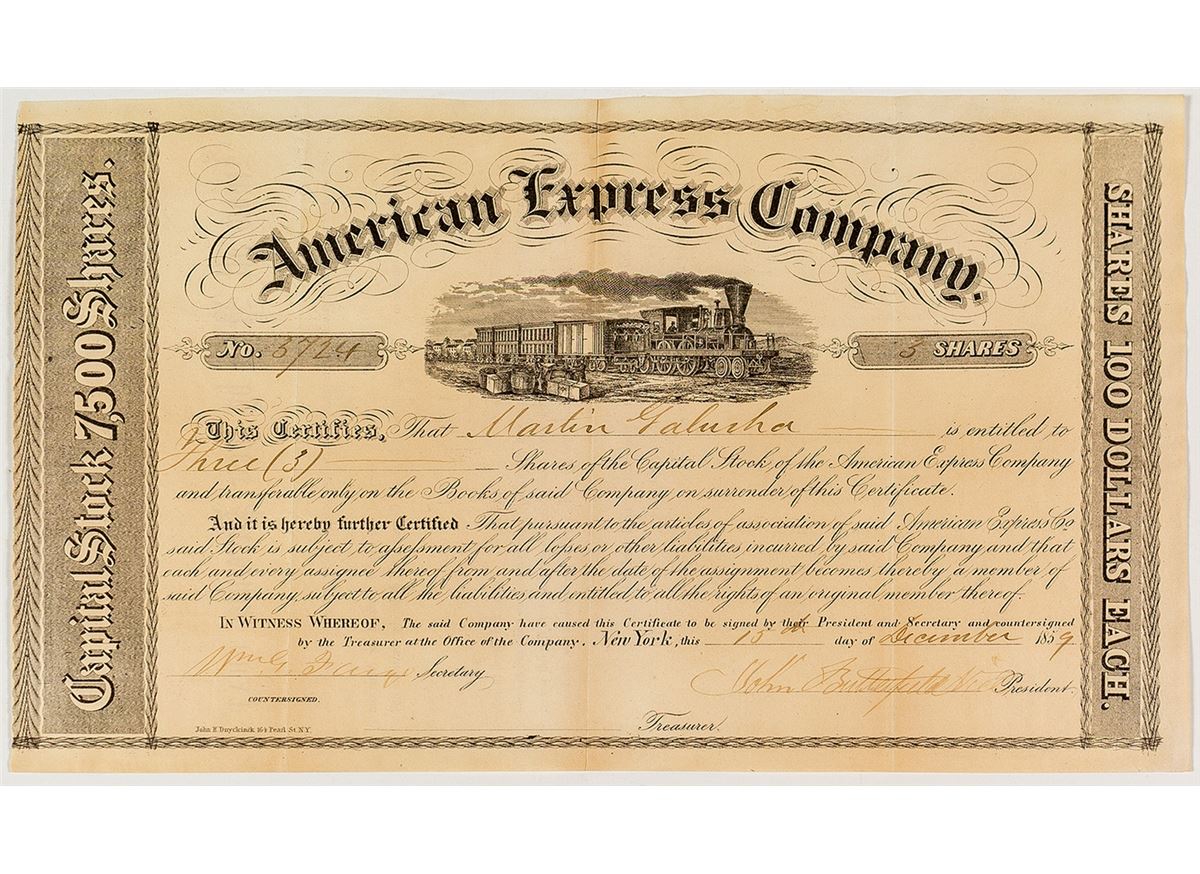 Capital Stock 7,500 Shares.
American Express Company.
No. 3724
3 SHARES
This Certifies, That Martin Galusha is entitled to
Three (3) Shares of the Capital Stock of the American Express Company
and transferable only on the Books of said Company on surrender of this Certificate.
And it is hereby further Certified That pursuant to the articles of association of said American Express Co
said Stock is subject to assessment for all losses or other liabilities incurred by said Company and that
each and every assignee thereof from and after the date of the assignment becomes thereby a member of
said Company, subject to all the liabilities and entitled to all the rights of an original member thereof.
IN WITNESS WHEREOF, The said Company have caused this Certificate to be signed by their President and Secretary and countersigned
by the Treasurer at the Office of the Company. New York, this 15th day of December 1859
Wm G. Fargo Secretary
John Butterfield Vice President.
COUNTERSIGNED.
Treasurer.
John E Duyckinck 164 Pearl St. N.Y.
SHARES 100 DOLLARS EACH.